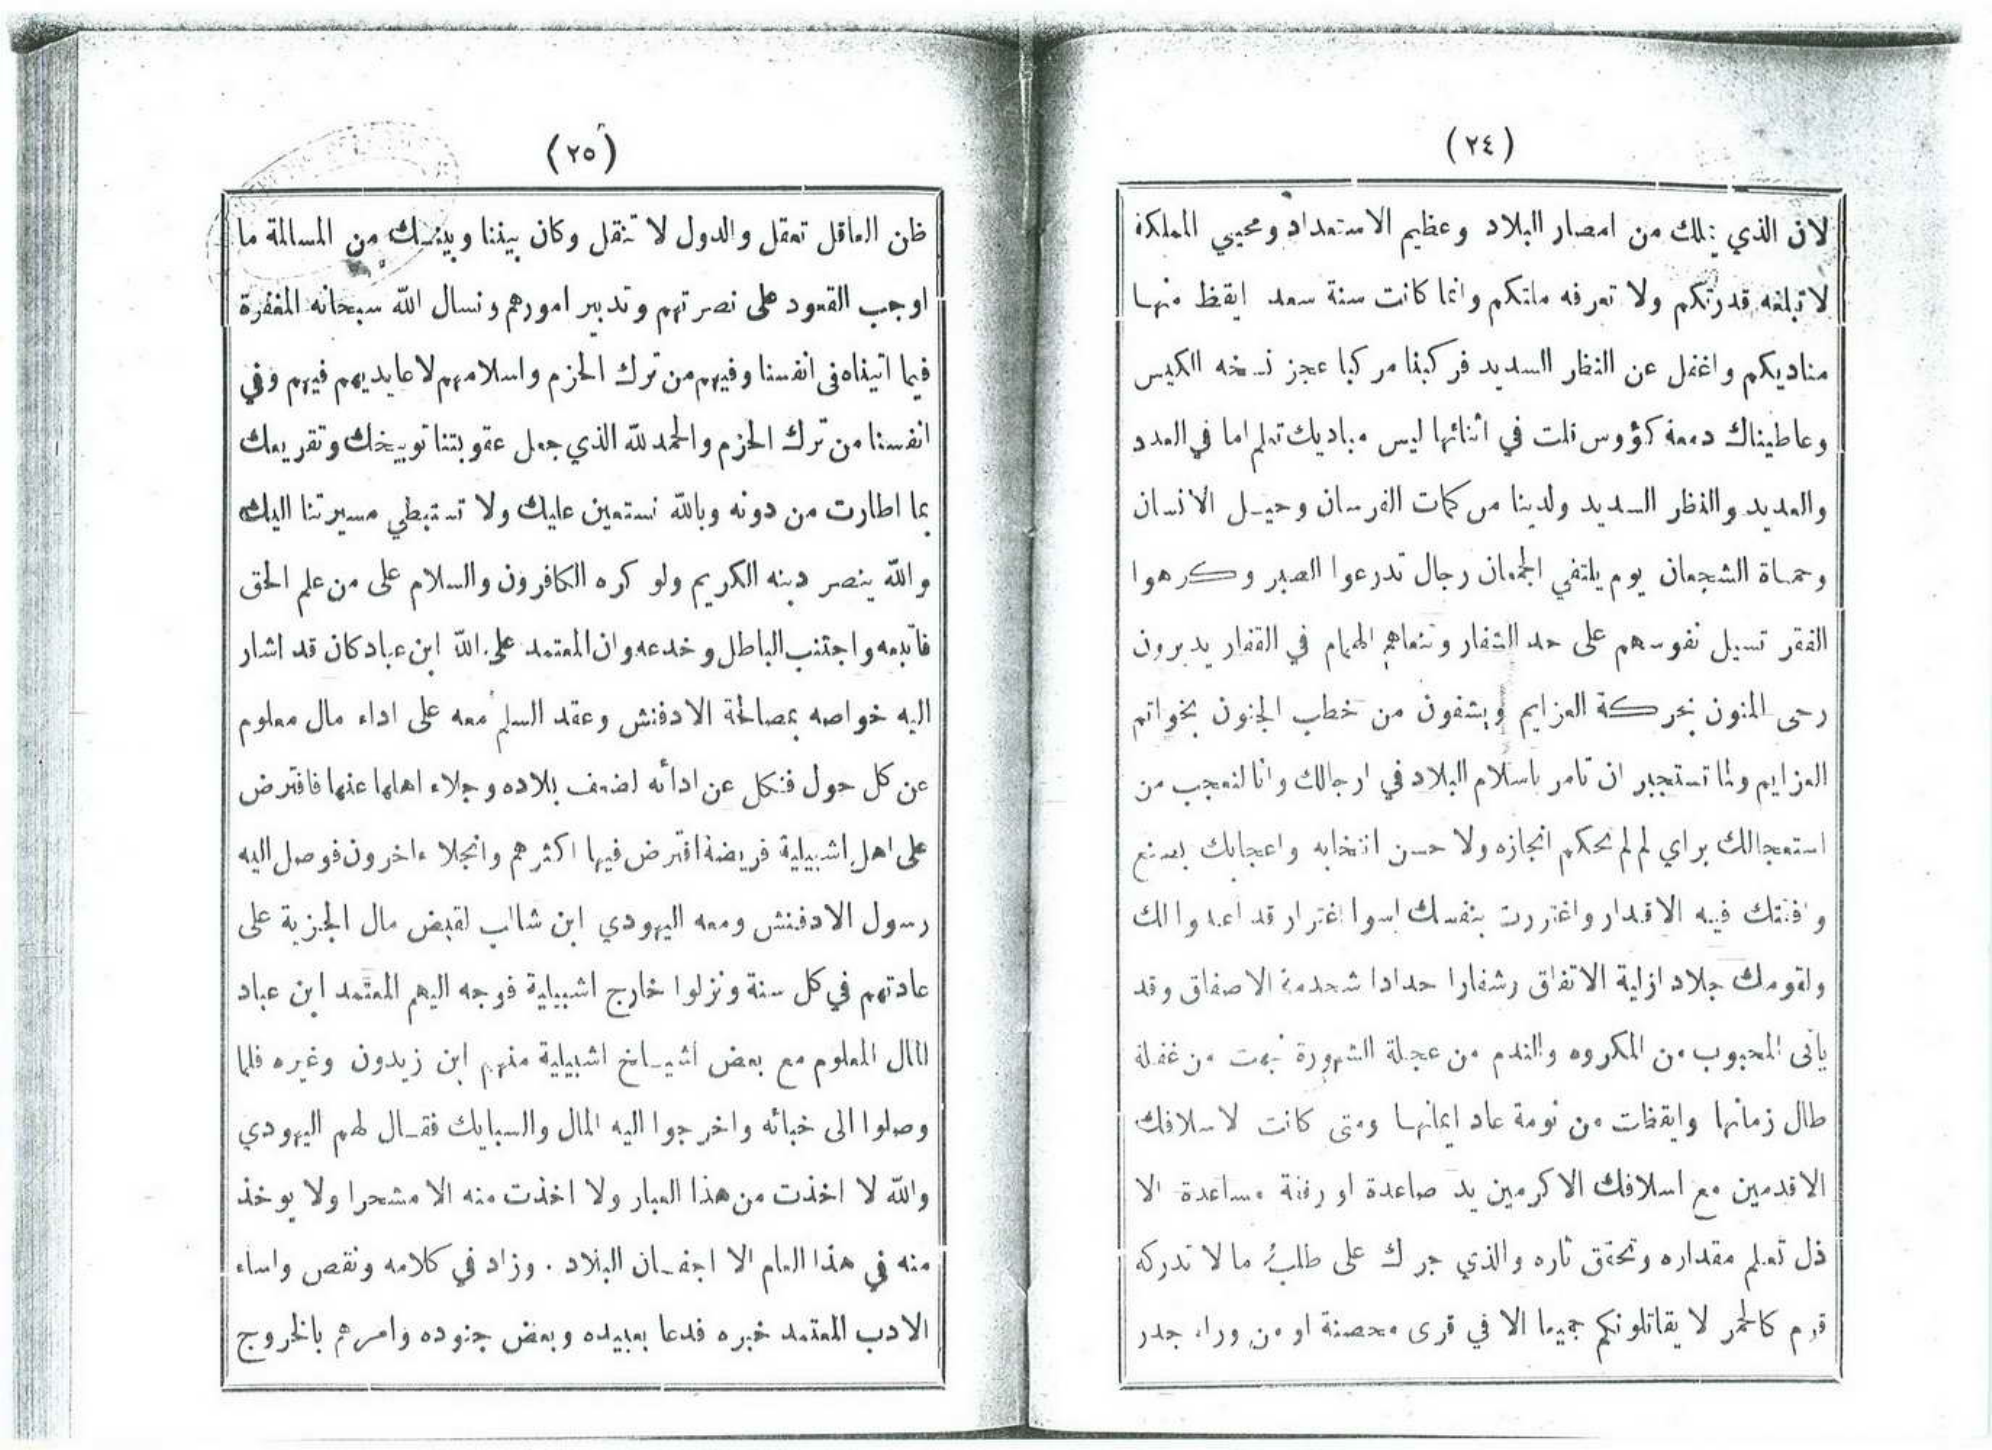 (٢٤)
لان الذي يملك من امصار البلاد وعظيم الاستعداد ومحيي المملكة
لا تبلغه قدرتكم ولا تعرفه ملتكم وانما كانت سنة سعد ايقظ منها
مناديكم واغفل عن النظار السديد فركبنا مركبا عجز نسخه الكيس
وعاطيناك دمعة كؤوس قلت في اثنائها ليس مباديك تعلم اما في العدد
والعديد والنظر السديد ولدينا من كمات الفرسان وحيل الانسان
وحماة الشجعان يوم يلتقي الجمعان رجال تدرعوا الصبر وكرهوا
الفقر تسيل نفوسهم على حد الشفار وتنعاهم الهمام في القفار يديرون
رحى المنون بحركة العزايم ويشفون من خطب الجنون بخواتم
العزايم ولما تستجبر ان تامر باسلام البلاد في ارجالك وانا لنعجب من
استعجالك براي لم لم يحكم انجازه ولا حسن انتخابه واعجابك بصنع
وافقتك فيه الاقدار واغتررت بنفسك اسوا اغترار قد اعدوا لك
ولقومك جلاد ازلية الاتفاق وشفارا حدادا شحدمة الاصفاق وقد
ياتى المحبوب من المكروه والندم من عجلة الشهورة نبهت من غفلة
طال زمانها وايقظت من نومة عاد ايمانها ومتى كانت لاسلافك
الاقدمين مع اسلافك الاكرمين يد صاعدة او رفقة مساعدة الا
ذل تعلم مقداره وتحقق ثاره والذي جرك على طلب ما لا تدركه
قوم كالحمر لا يقاتلونكم جميعا الا في قرى محصنة او من وراء جدر
(٢٥)
ظن العاقل تعقل والدول لا تنقل وكان بيننا وبينك من المسالمة ما
اوجب القعود على نصرتهم وتدبير امورهم ونسال الله سبحانه المغفرة
فيما اتيناه في انفسنا وفيهم من ترك الحزم واسلامهم لاعاديهم فيهم وفي
انفسنا من ترك الحزم والحمد لله الذي جعل عقوبتنا توبيخك وتقريعك
بما اطارت من دونه وبالله نستعين عليك ولا تستبطي مسيرتنا اليك
والله ينصر دينه الكريم ولو كره الكافرون والسلام على من علم الحق
فاتبعه واجتنب الباطل وخدعه وان المعتمد على الله ابن عباد كان قد اشار
اليه خواصه بمصالحة الادفنش وعقد السلم معه على اداء مال معلوم
عن كل حول فنكل عن ادائه لضعف بلاده وجلاء اهلها عنها فافترض
على اهل اشبيلية فريضة افترض فيها اكثرهم وانجلا ءاخرون فوصل اليه
رسول الادفنش ومعه اليهودي ابن شالب لقبض مال الجزية على
عادتهم في كل سنة ونزلوا خارج اشبيلية فوجه اليهم المعتمد ابن عباد
المال المعلوم مع بعض اشياخ اشبيلية منهم ابن زيدون وغيره فلما
وصلوا الى خبائه واخرجوا اليه المال والسبايك فقال لهم اليهودي
والله لا اخذت من هذا العيار ولا اخذت منه الا مشحرا ولا يوخذ
منه في هذا العام الا اجفان البلاد . وزاد في كلامه ونقص واساء
الادب المعتمد خبره فدعا بعبيده وبعض جنوده وامرهم بالخروج